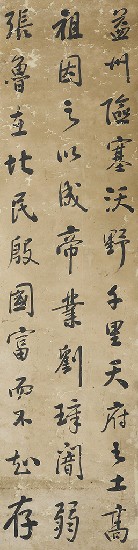 益州險塞沃野千里天府之土高
祖因之以成帝業劉璋闇弱
張魯在北民殷國富而不知存